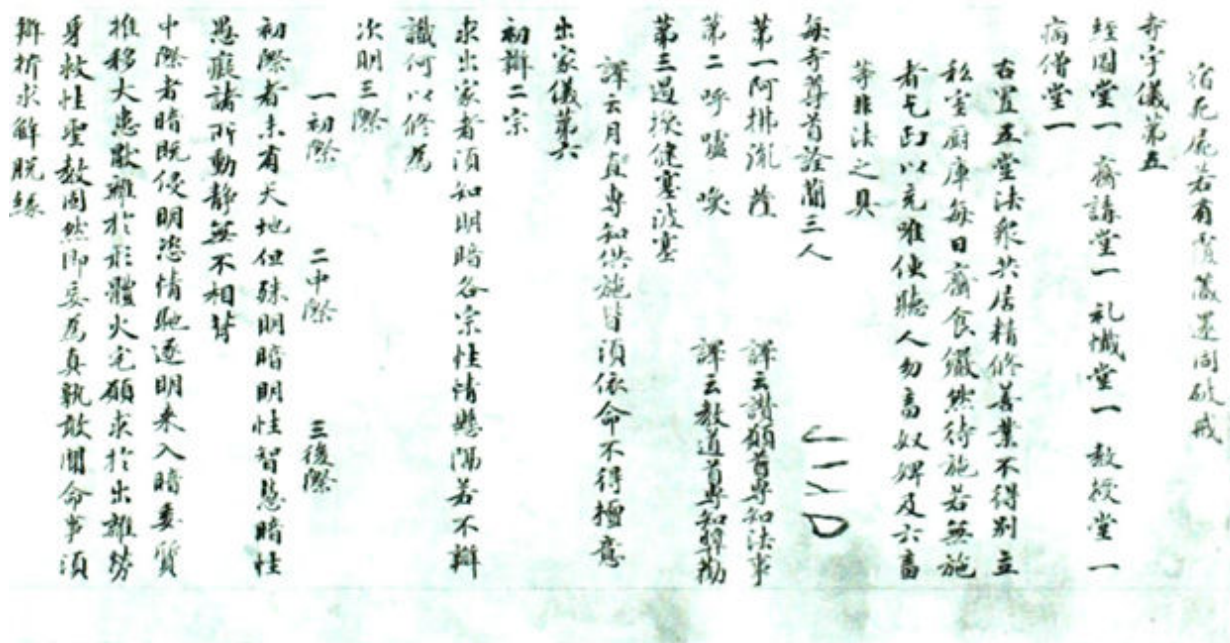 宿死屍若有覆藏還同破戒
寺宇儀第五
經圖堂一 齋講堂一 礼懺堂一 教授堂一
病僧堂一
右置五堂法衆共居精修善業不得別立
私室廚庫每日齋食儼然待施若無施
者乞丐以充唯使聽人勿畜奴婢及六畜
等非法之具
每寺尊首詮簡三人
第一阿拂胤薩 譯云讚願首專知法事
第二呼嚧喚 譯云教道首專知獎勸
第三遏換健塞波塞
譯云月直專知供施皆須依命不得擅意
出家儀第六
初辯二宗
求出家者須知明暗各宗性情懸隔若不辯
識何以修為
次明三際
一初際 二中際 三後際
初際者未有天地但殊明暗明性智慧暗性
愚癡諸所動靜無不相背
中際者暗既侵明恣情馳逐明来入暗委質
推移大患猒離於形體火宅願求於出離勞
身救性聖教固然即妄為真孰敢聞命事須
辯折求解脫緣